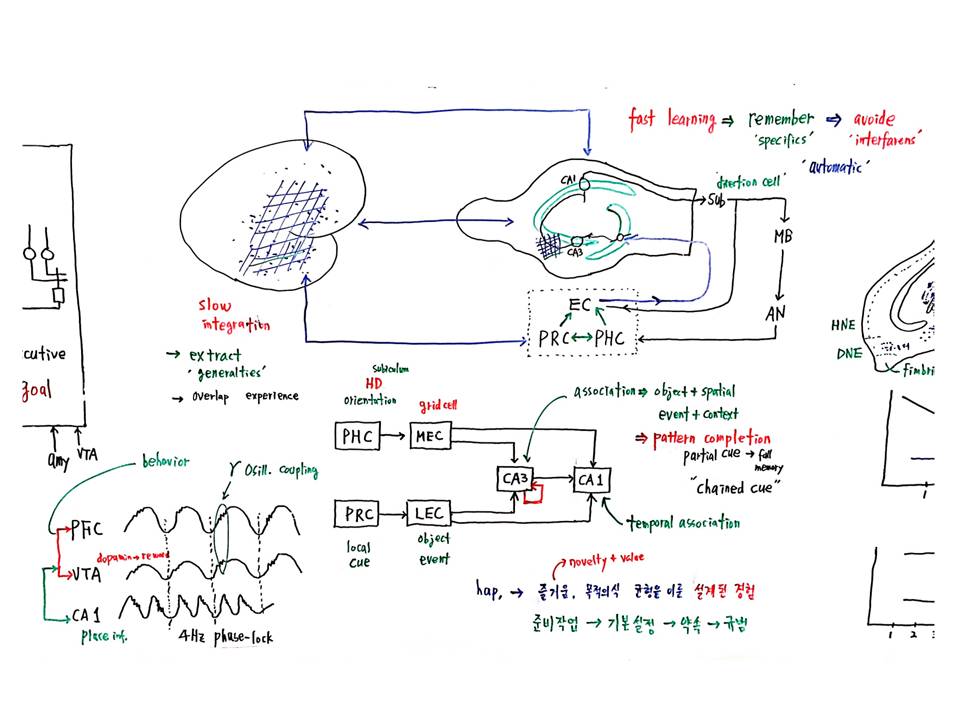 fast learning ⇒ remember ⇒ avoide
"specifics" "interferens"
"automatic"
CA1
"direction cell"
Sub
MB
CA3
EC
AN
PRC ↔ PHC
HNE
DNE
fimbri
slow
integration
→ extract
"generalties"
→ overlap experience
cutive
goal
amy VTA
subiculum
HD
orientation
grid cell
association ⇒ object + spatial
event + context
⇒ pattern completion
partial cue → full
memory
"chained cue"
PHC → MEC
CA3 → CA1
PRC → LEC
local
cue
object
event
temporal association
behavior
γ Osill. coupling
PFC
dopamin → reward
VTA
CA1
place inf.
4Hz phase-lock
novelty + value
hap. → 즐거움, 목적의식 균형을 이룬 설계된 경험
준비작업 → 기본설정 → 약속 → 규범
1
1 2 3